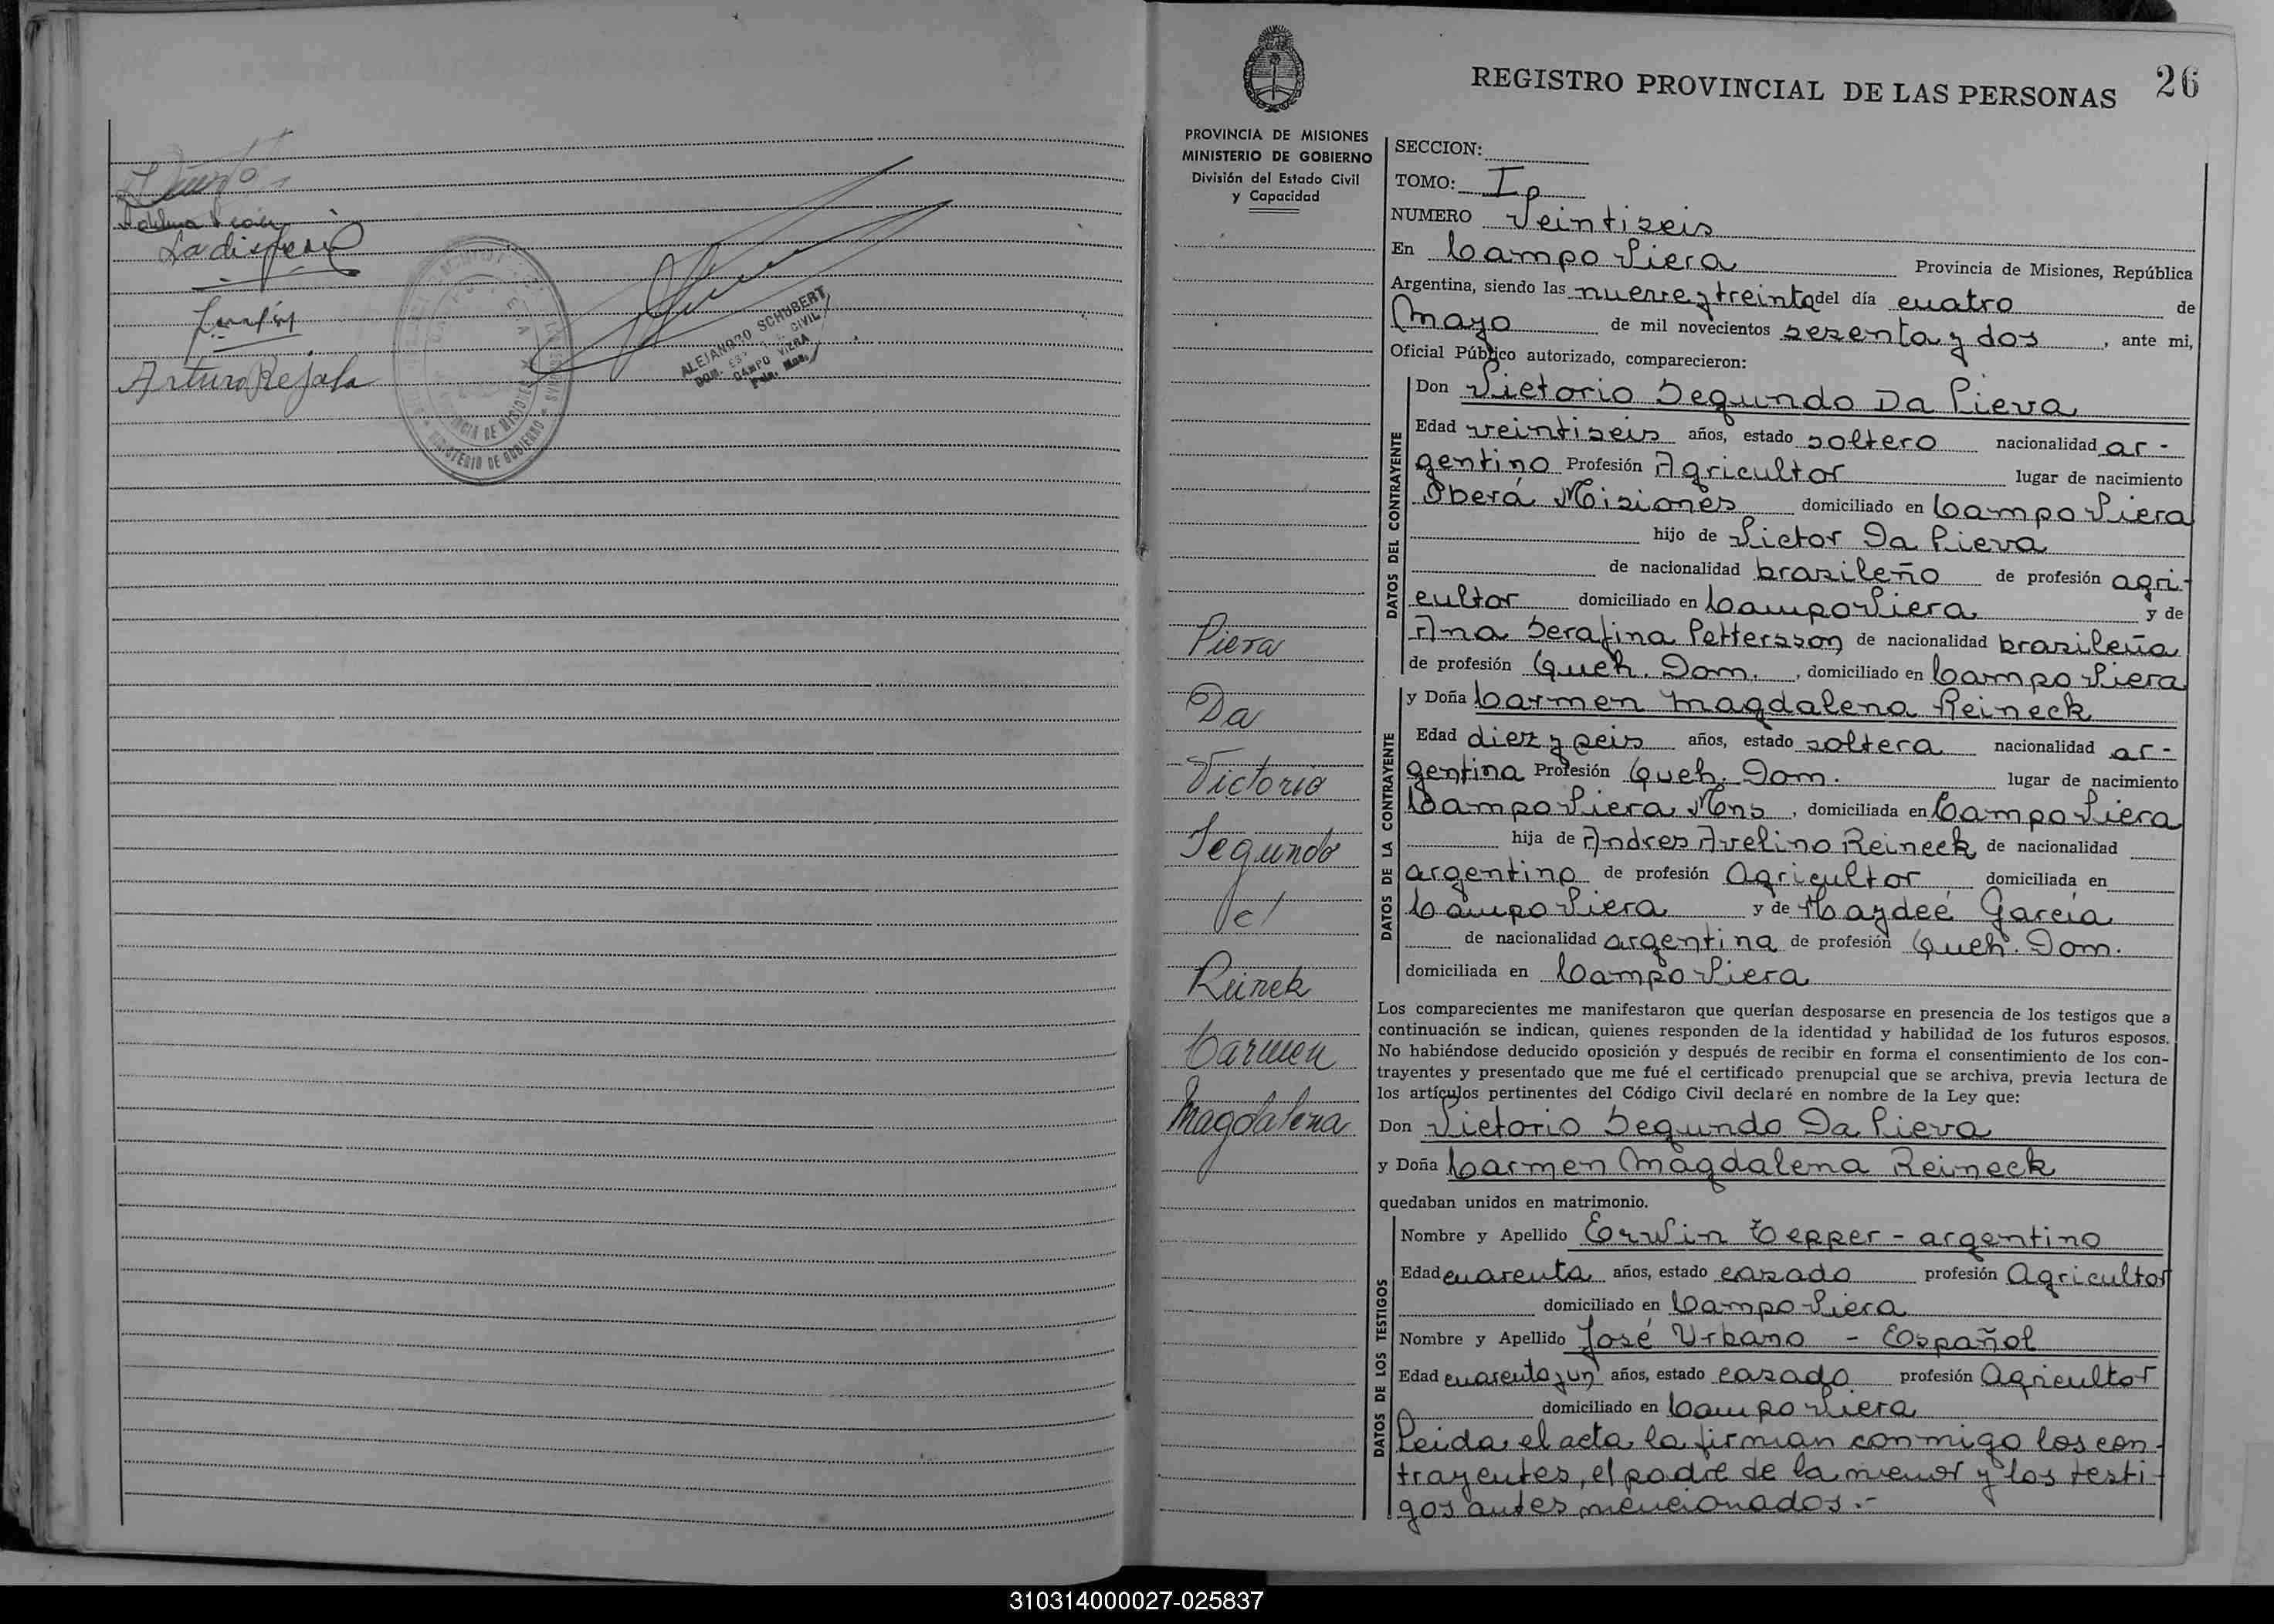 Ladisferio
Arturo Rejala
ALEJANDRO SCHUBERT
CIVIL
CAMPO VIERA
MINISTERIO DE GOBIERNO
REGISTRO PROVINCIAL DE LAS PERSONAS 26
PROVINCIA DE MISIONES
MINISTERIO DE GOBIERNO
División del Estado Civil
y Capacidad
Piera
Da
Victorio
Segundo
c/
Reinek
Carmen
Magdalena
SECCION:
TOMO: I
NUMERO Veintiseis
En Campo Viera Provincia de Misiones, República
Argentina, siendo las nueve y treinta del día cuatro de
Mayo de mil novecientos sesenta y dos, ante mi,
Oficial Público autorizado, comparecieron:
DATOS DEL CONTRAYENTE
Don Victorio Segundo Da Pieva
Edad veintiseis años, estado soltero nacionalidad ar-
gentino Profesión Agricultor lugar de nacimiento
Oberá Misiones domiciliado en Campo Viera
hijo de Victor Da Pieva
de nacionalidad brasileño de profesión agri-
cultor domiciliado en Campo Viera y de
Ana Serafina Pettersson de nacionalidad brasileña
de profesión Queh. Dom. , domiciliado en Campo Viera
DATOS DE LA CONTRAYENTE
y Doña Carmen Magdalena Reineck
Edad diez y seis años, estado soltera nacionalidad ar-
gentina Profesión Queh. Dom. lugar de nacimiento
Campo Viera Mns , domiciliada en Campo Viera
hija de Andres Avelino Reineck de nacionalidad
argentino de profesión Agricultor domiciliada en
Campo Viera y de Haydeé García
de nacionalidad argentina de profesión Queh. Dom.
domiciliada en Campo Viera
Los comparecientes me manifestaron que querían desposarse en presencia de los testigos que a
continuación se indican, quienes responden de la identidad y habilidad de los futuros esposos.
No habiéndose deducido oposición y después de recibir en forma el consentimiento de los con-
trayentes y presentado que me fué el certificado prenupcial que se archiva, previa lectura de
los artículos pertinentes del Código Civil declaré en nombre de la Ley que:
Don Victorio Segundo Da Pieva
y Doña Carmen Magdalena Reineck
quedaban unidos en matrimonio.
DATOS DE LOS TESTIGOS
Nombre y Apellido Erwin Tepper - argentino
Edad cuarenta años, estado casado profesión Agricultor
domiciliado en Campo Viera
Nombre y Apellido José Urbano - Español
Edad cuarenta y un años, estado casado profesión Agricultor
domiciliado en Campo Viera
Leida el acta la firman conmigo los con-
trayentes, el padre de la menor y los testi-
gos antes mencionados.-
310314000027-025837